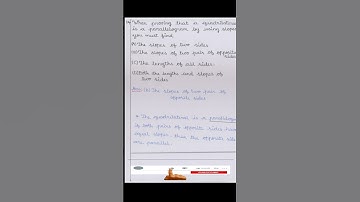 When proving that a quadrilateral
is a parallelogram by using slopes
you must find
(A) The slopes of two sides
(B) The slopes of two pair of opposite
sides
(C) The lengths of all sides
(D) Both the lengths and slopes of
two sides
Ans: (B) The slopes of two pair of
opposite sides
* The quadrilateral is a parallelogram
is both pairs of opposite sides have
equal slopes. Thus the opposite sides
are parallel.